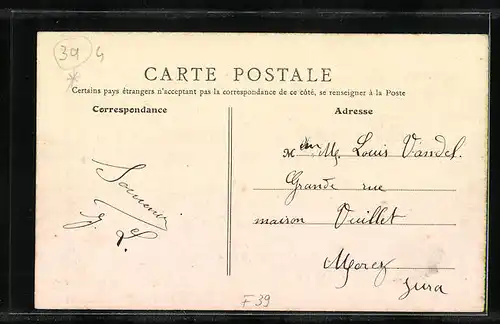 39 4
CARTE POSTALE
Certains pays étrangers n'acceptant pas la correspondance de ce côté, se renseigner à la Poste
Correspondance
Adresse
Souvenir
L.
M Louis Vandel.
Grande rue
maison Vuillet
Morez
Jura
F 39